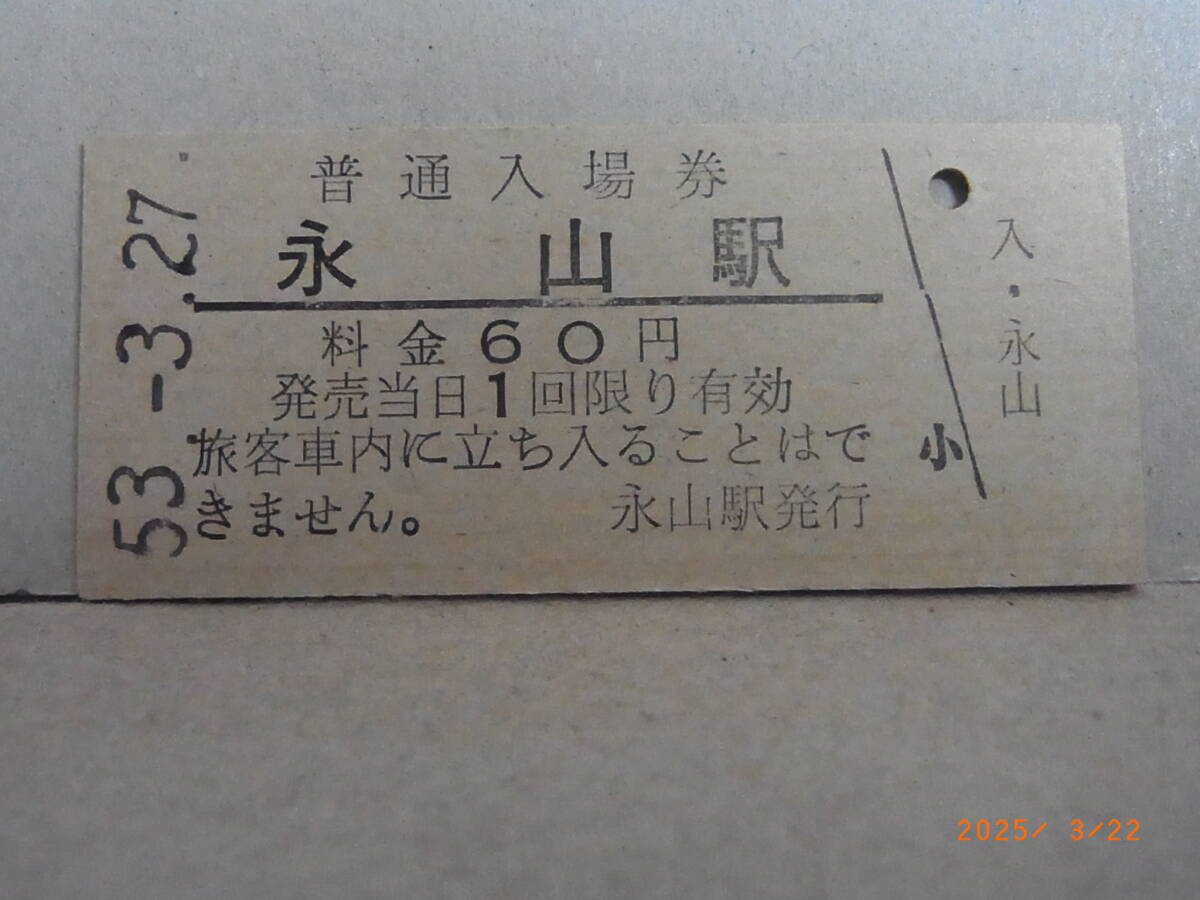 普通入場券
永山駅
料金60円
発売当日1回限り有効
旅客車内に立ち入ることはで
きません。 永山駅発行
小
入・永山
53.-3.27
2025/ 3/22